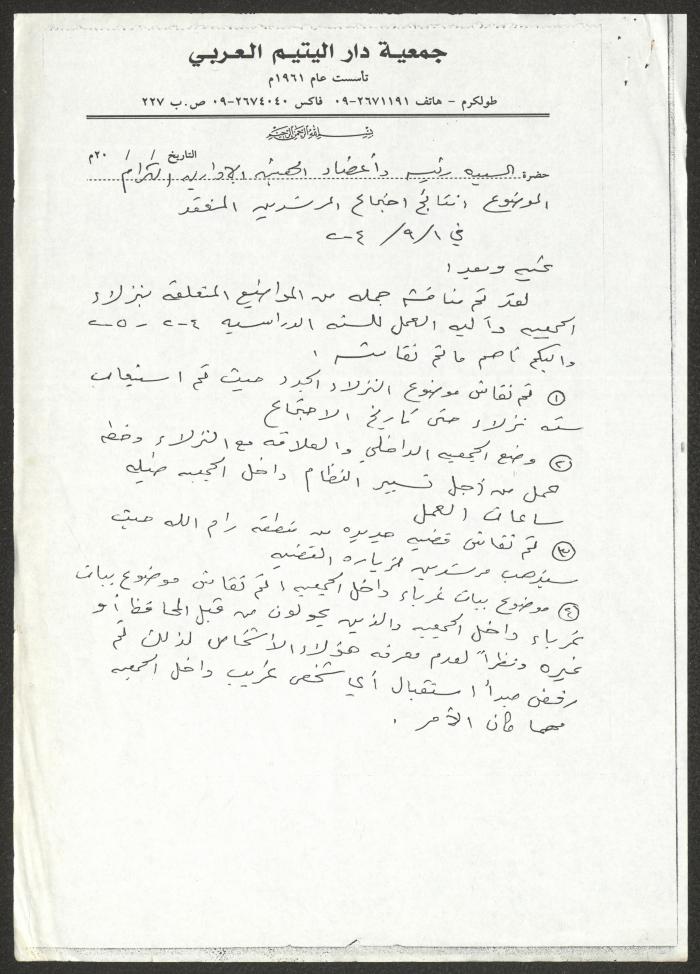 جمعية دار اليتيم العربي
تأسست عام ١٩٦١م
طولكرم - هاتف ٢٦٧١١٩١-٠٩ فاكس ٢٦٧٤٠٤٠-٠٩ ص.ب ٢٢٧
بسم الله الرحمن الرحيم
التاريخ / / ٢٠م
حضرة السيد رئيس وأعضاء الهيئة الادارية الكرام
الموضوع : نتائج اجتماع المرشدين المنعقد
في ١/ ٩/ ٢٠٠٤
تحيه وبعد ،
لقد تم مناقشة جمله من المواضيع المتعلقه بنزلاء
الجمعيه وآليه العمل للسنه الدراسيه ٢٠٠٤ - ٢٠٠٥
واليكم ما تم نقاشه :
١ تم نقاش موضوع النزلاء الجدد حيث تم استيعاب
سته نزلاء حتى تاريخ الاجتماع
٢ وضع الجمعيه الداخلي والعلاقه مع النزلاء وخطه
عمل من أجل تسيير النظام داخل الجمعيه طيله
ساعات العمل
٣ تم نقاش قضيه جديده من منطقه رام الله حيث
سيذهب مرشدين لزياره القضيه
٤ موضوع بيات غرباء داخل الجمعيه : تم نقاش موضوع بيات
غرباء داخل الجمعيه والذين يحولون من قبل المحافظ أو
غيره ونظراً لعدم معرفه هؤلاء الأشخاص لذلك تم
رفض مبدأ استقبال أي شخص غريب داخل الجمعيه
مهما كان الأمر .